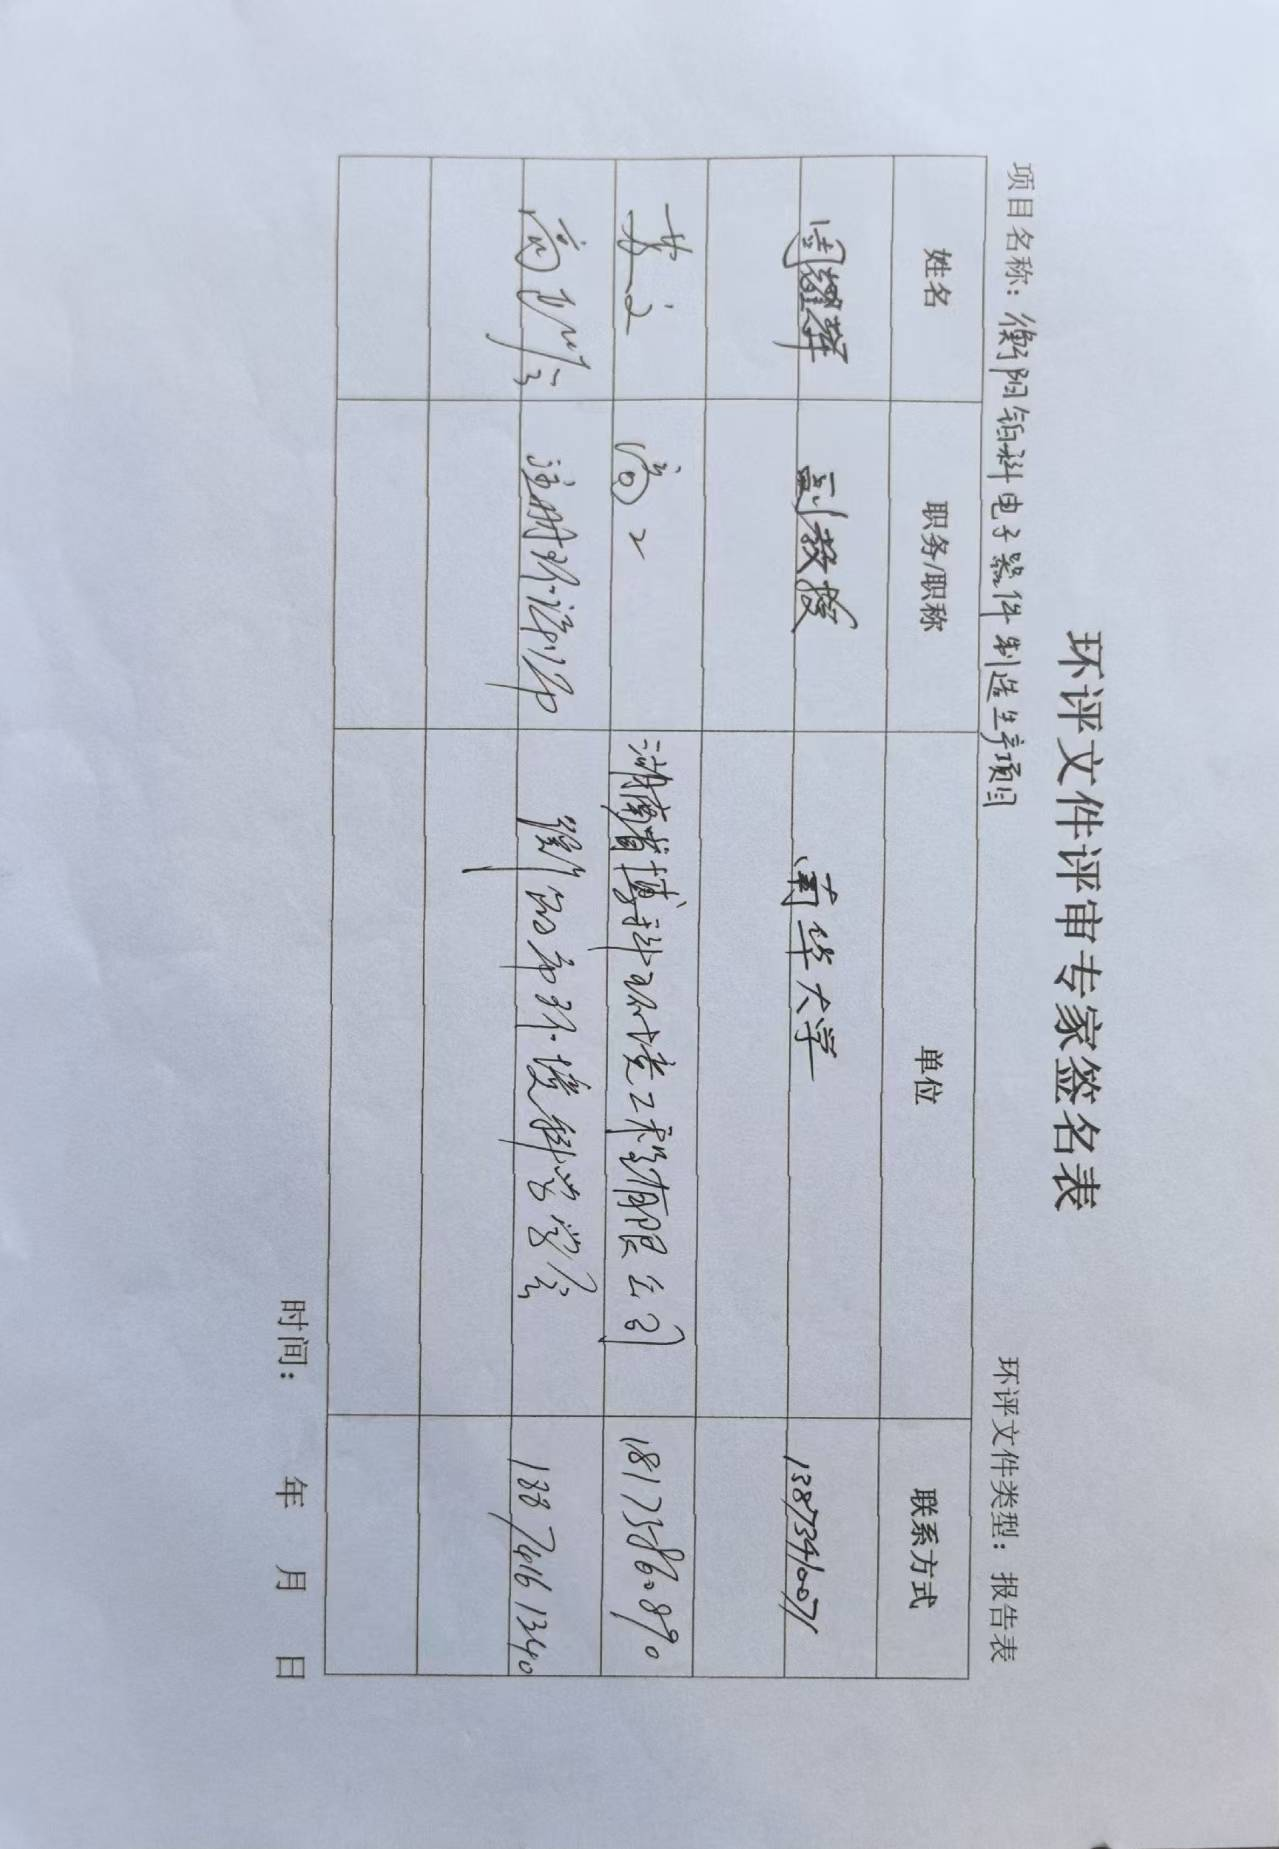 环评文件评审专家签名表
项目名称：衡阳铂科电子器件制造生产项目 环评文件类型：报告表
姓名 职务/职称 单位 联系方式
周耀辉 副教授 南华大学 13873441007
高工 湖南省博科环境工程有限公司 18173860890
注册环评师 衡阳市环境科学学会 18874161340
时间： 年 月 日